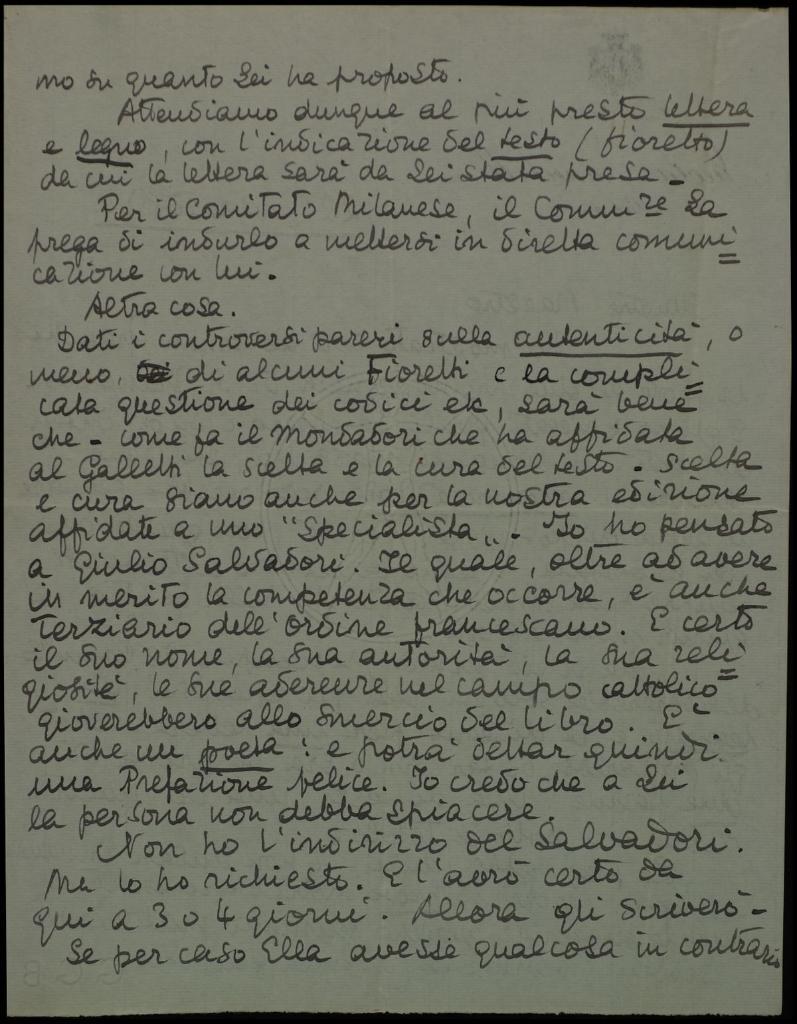 mo su quanto Lei ha proposto.
Attendiamo dunque al più presto lettera
e legno, con l'indicazione del testo (fioretto)
da cui la lettera sarà da Lei stata presa -
Per il Comitato Milanese, il Comm.re La
prega di indurlo a mettersi in diretta comuni=
cazione con lui.
Altra cosa.
Dati i controversi pareri sulla autenticità, o
meno, di alcuni Fioretti e la compli=
cata questione dei codici etc, sarà bene
che - come fa il Mondadori che ha affidata
al Galletti la scelta e la cura del testo - scelta
e cura siano anche per la nostra edizione
affidate a uno "Specialista„. Io ho pensato
a Giulio Salvadori. Il quale, oltre ad avere
in merito la competenza che occorre, è anche
terziario dell'ordine francescano. E certo
il suo nome, la sua autorità, la sua reli=
giosità, le sue aderenze nel campo cattolico
gioverebbero allo smercio del libro. E'
anche un poeta: e potrà dettar quindi
una Prefazione felice. Io credo che a Lei
la persona non debba spiacere.
Non ho l'indirizzo del Salvadori.
Ma lo ho richiesto. E l'avrò certo da
qui a 3 o 4 giorni. Allora gli scriverò -
Se per caso Ella avesse qualcosa in contrario